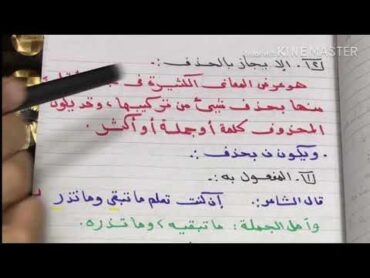 Made with
KINEMASTER
[٢]. الإيجاز بالحذف :.
هو عرض المعاني الكثيرة في
منها بحذف شيئ من تركيبها، وقد يكون
المحذوف كلمة أو جملة أو أكثر.
. ويكون في بحذف :.
[١]. المفعول به :.
قال الشاعر: إن كنت تعلم ما تبقي وما تذر
وأصل الجملة : ما تبقيه، وما تذره.